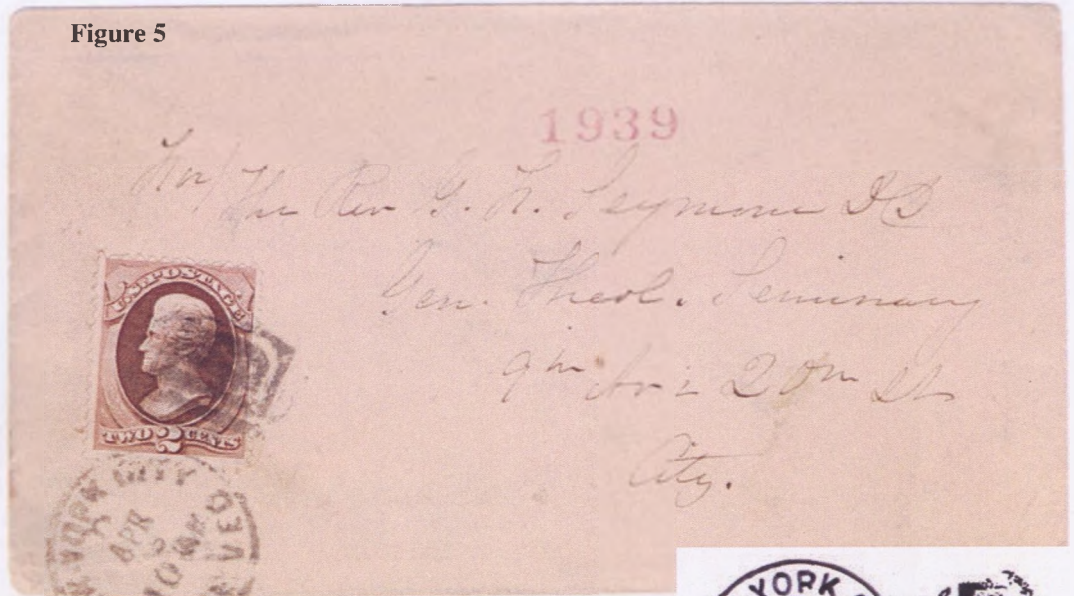 Figure 5
1939
The Rev G. Seymour DD
Gen. Theol. Seminary
9th Av & 20th St
City.
U.S. POSTAGE
TWO 2 CENTS
YORK CITY DEL
APR
10 AM
YORK